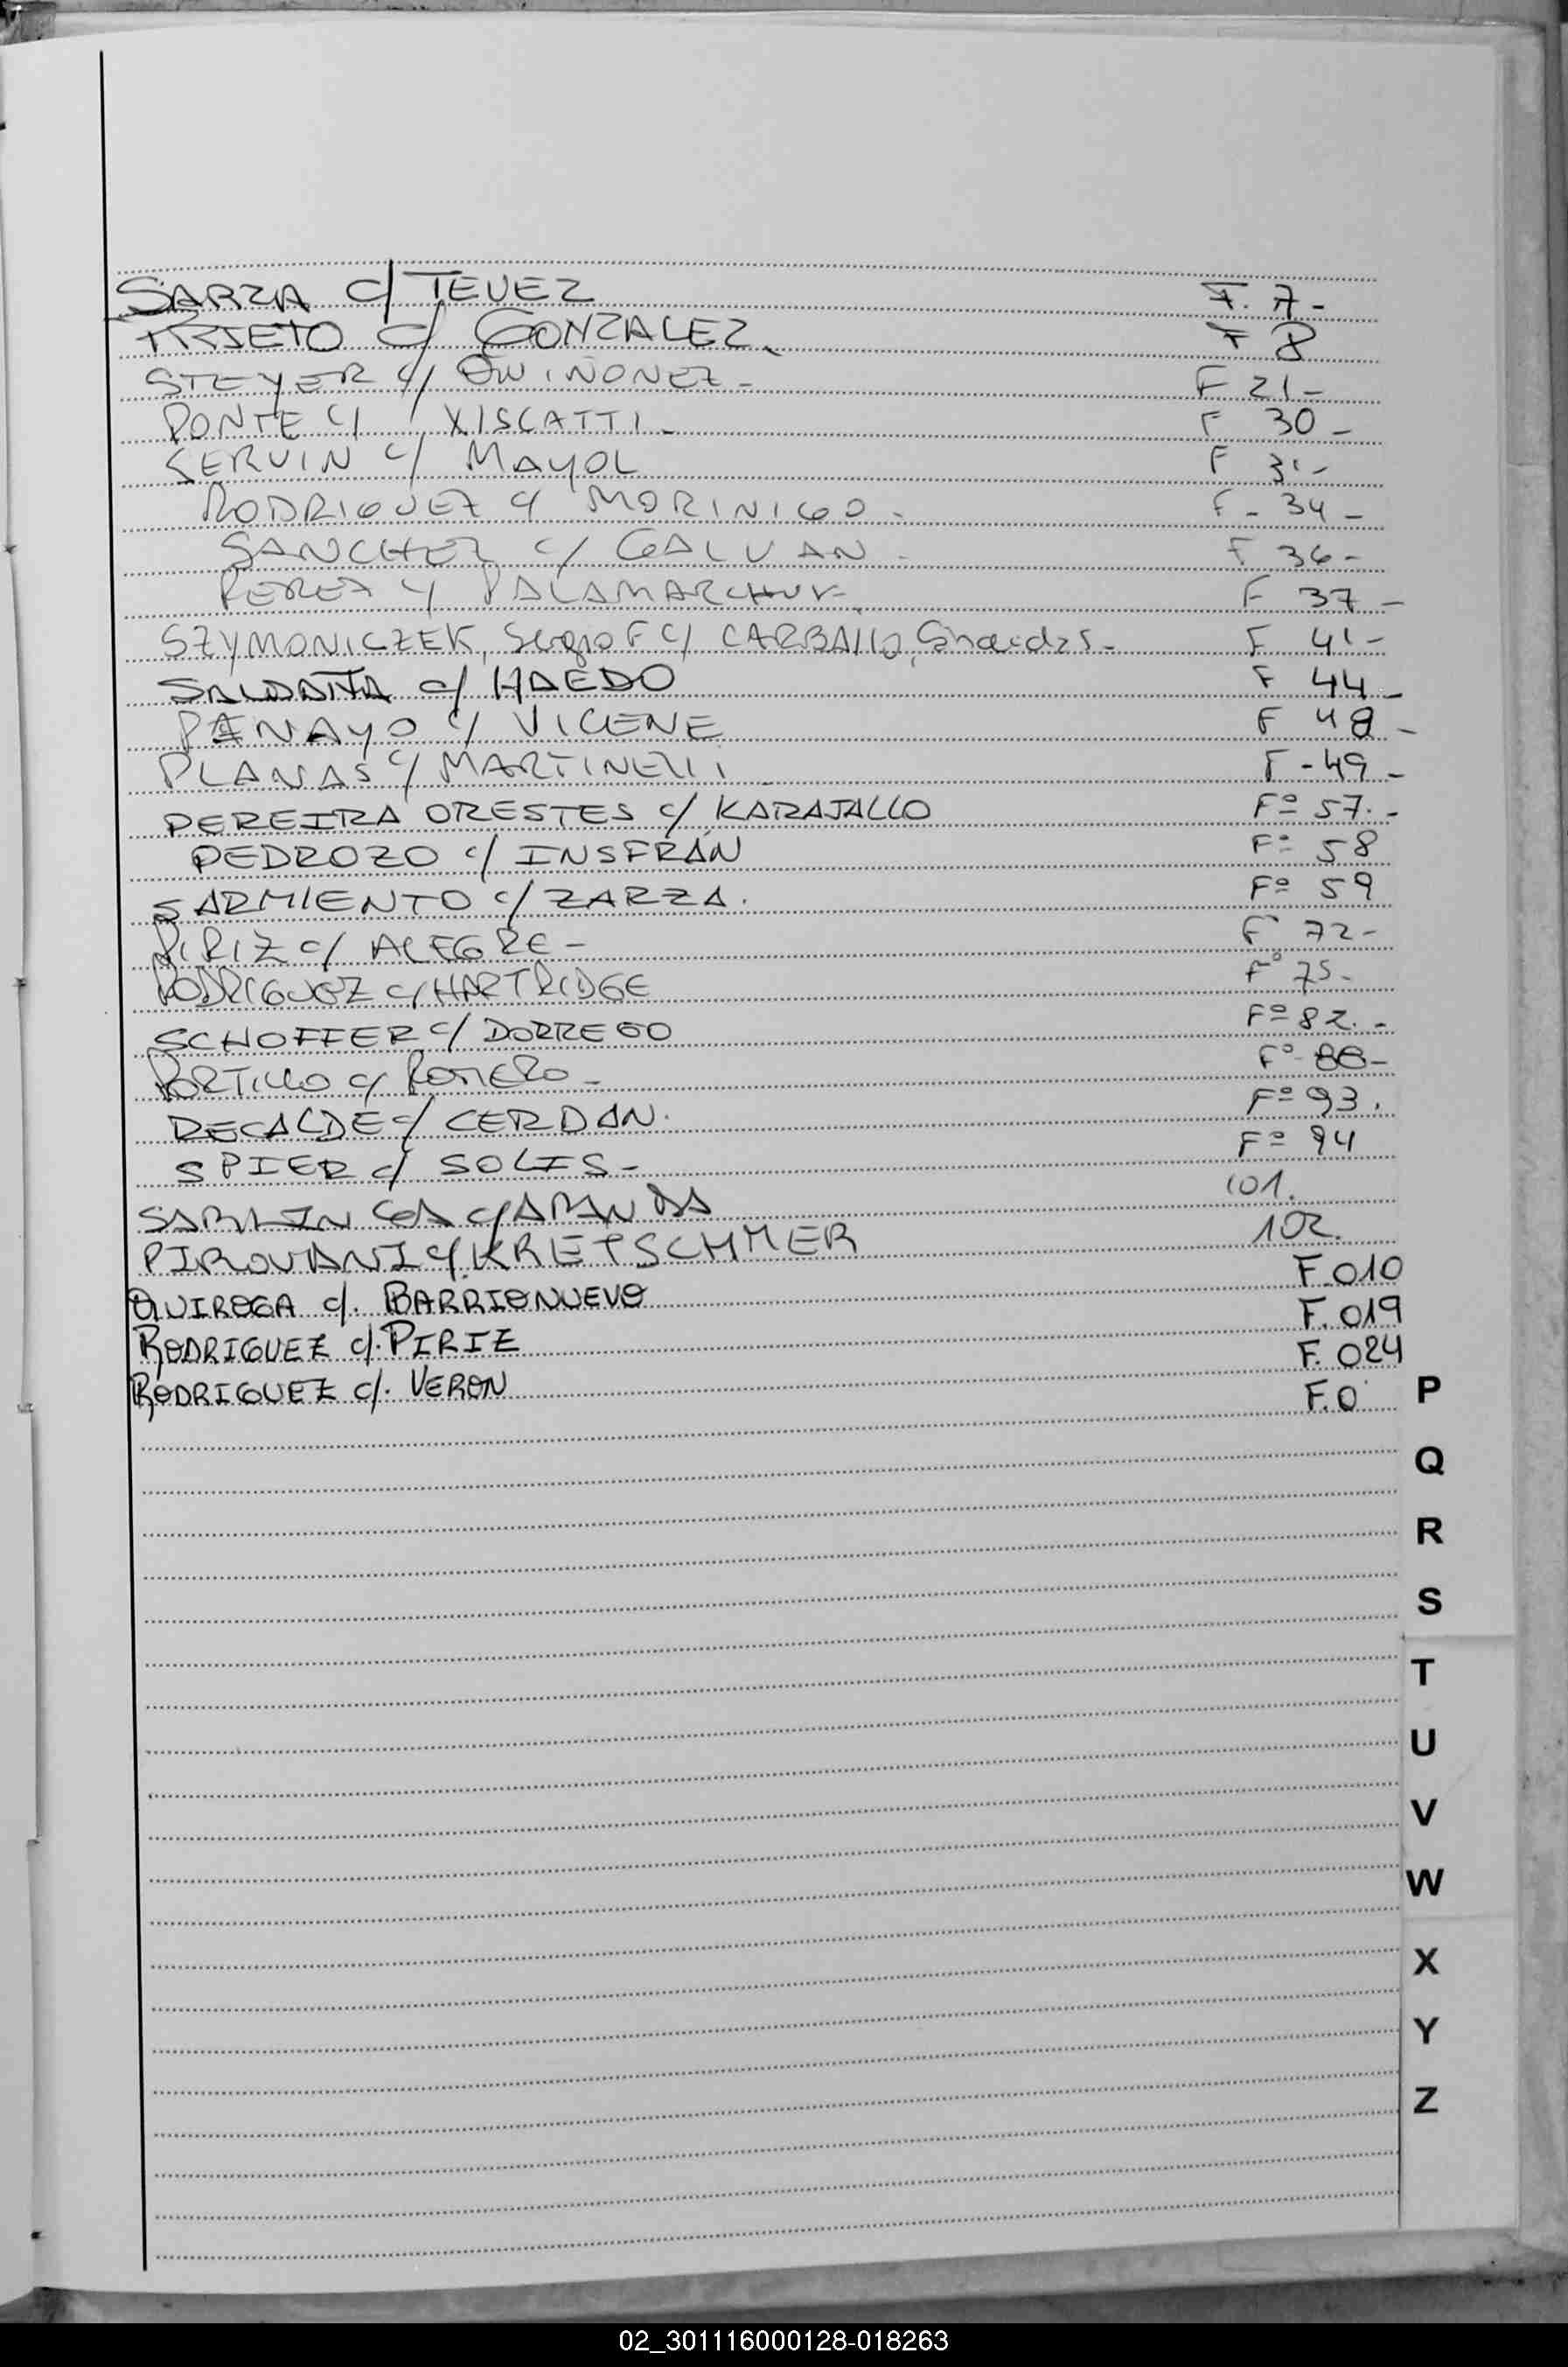 SARZA c/ TEVEZ F. 7-
PRIETO c/ GONZALEZ. F 8
STEYER c/ QUIÑONEZ- F 21-
PONTE c/ XISCATTI- F 30-
SERVIN c/ MAYOL F 31-
RODRIGUEZ c/ MORINIGO- F- 34-
SANCHEZ c/ GALVAN- F 36-
PEREZ c/ PALAMARCHUK. F 37-
SZYMONICZEK, Sergio F c/ CARBALLO, F 41-
SALDAÑA c/ HAEDO F 44-
c/ VICENE F 48-
PLANAS c/ MARTINELLI F-49-
PEREIRA ORESTES c/ KARAJALLO Fº 57.-
PEDROZO c/ INSFRÁN Fº 58
SARMIENTO c/ ZARZA. Fº 59
PIRIZ c/ ALEGRE- F 72-
RODRIGUEZ c/ HARTRIDGE Fº 75-
SCHOFFER c/ DORREGO Fº 82.-
PORTILLO c/ ROMERO- Fº 88-
RECALDE c/ CERDAN. Fº 93.
SPIER c/ SOLIS- Fº 94
c/ 101.
PIROVANI c/ KRETSCHMER 102.
QUIROGA c/. BARRIONUEVO F.010
RODRIGUEZ c/. PIRIZ F.019
RODRIGUEZ c/. VERON F.024
F.0
P
Q
R
S
T
U
V
W
X
Y
Z
02_301116000128-018263